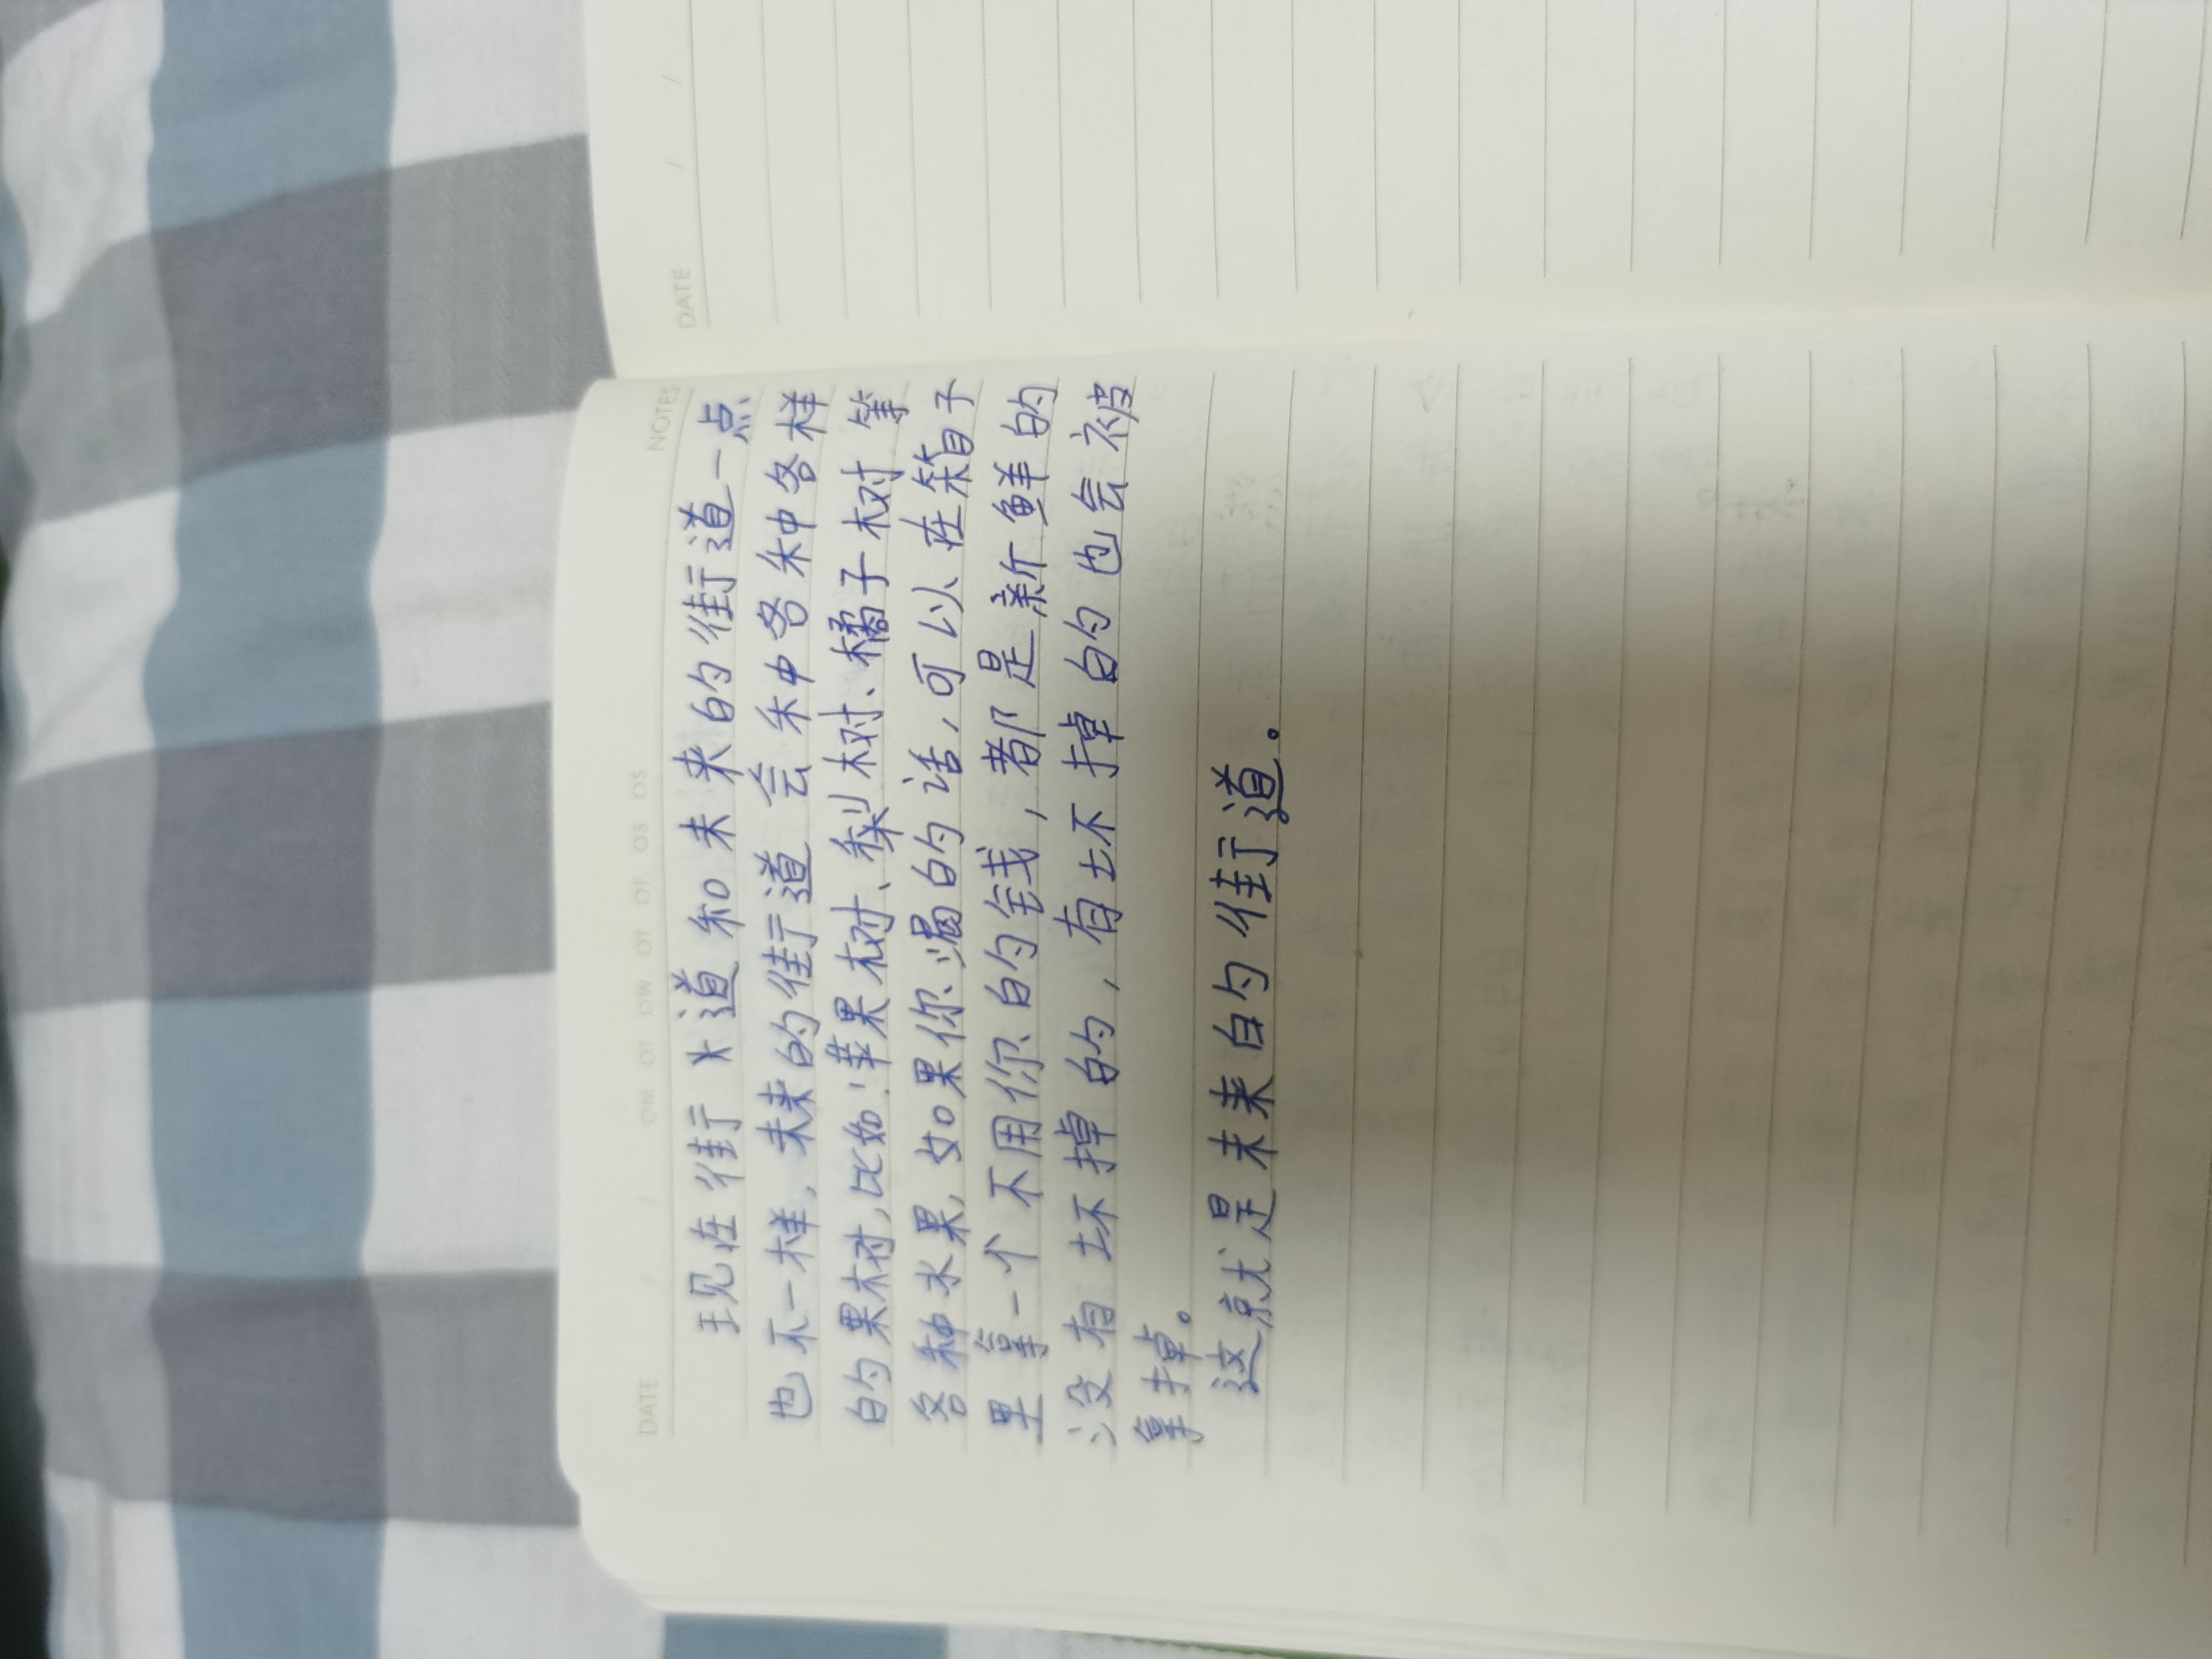 DATE / / OM OT OW OT OF OS OS NOTES
现在街道和未来的街道一点
也不一样，未来的街道会种各种各样
的果树，比如：苹果树、梨树、橘子树等
各种水果，如果你渴的话，可以在箱子
里拿一个不用你的钱，都是新鲜的
没有坏掉的，有坏掉的也会被
拿掉。
这就是未来的街道。
DATE / /